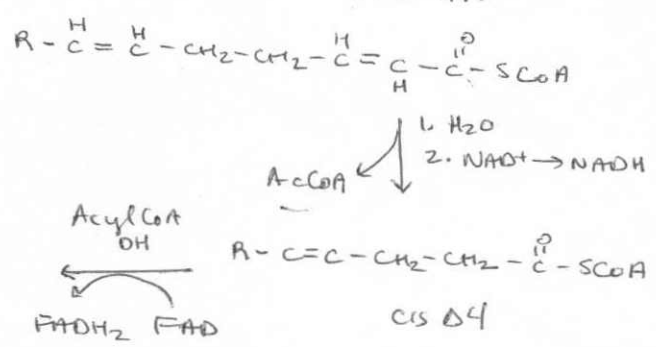 R - C = C - CH2 - CH2 - C = C - C - SCoA
H H H H O
1. H2O
2. NAD+ → NADH
AcCoA
Acyl CoA
DH
R - C = C - CH2 - CH2 - C - SCoA
O
FADH2 FAD
cis Δ4